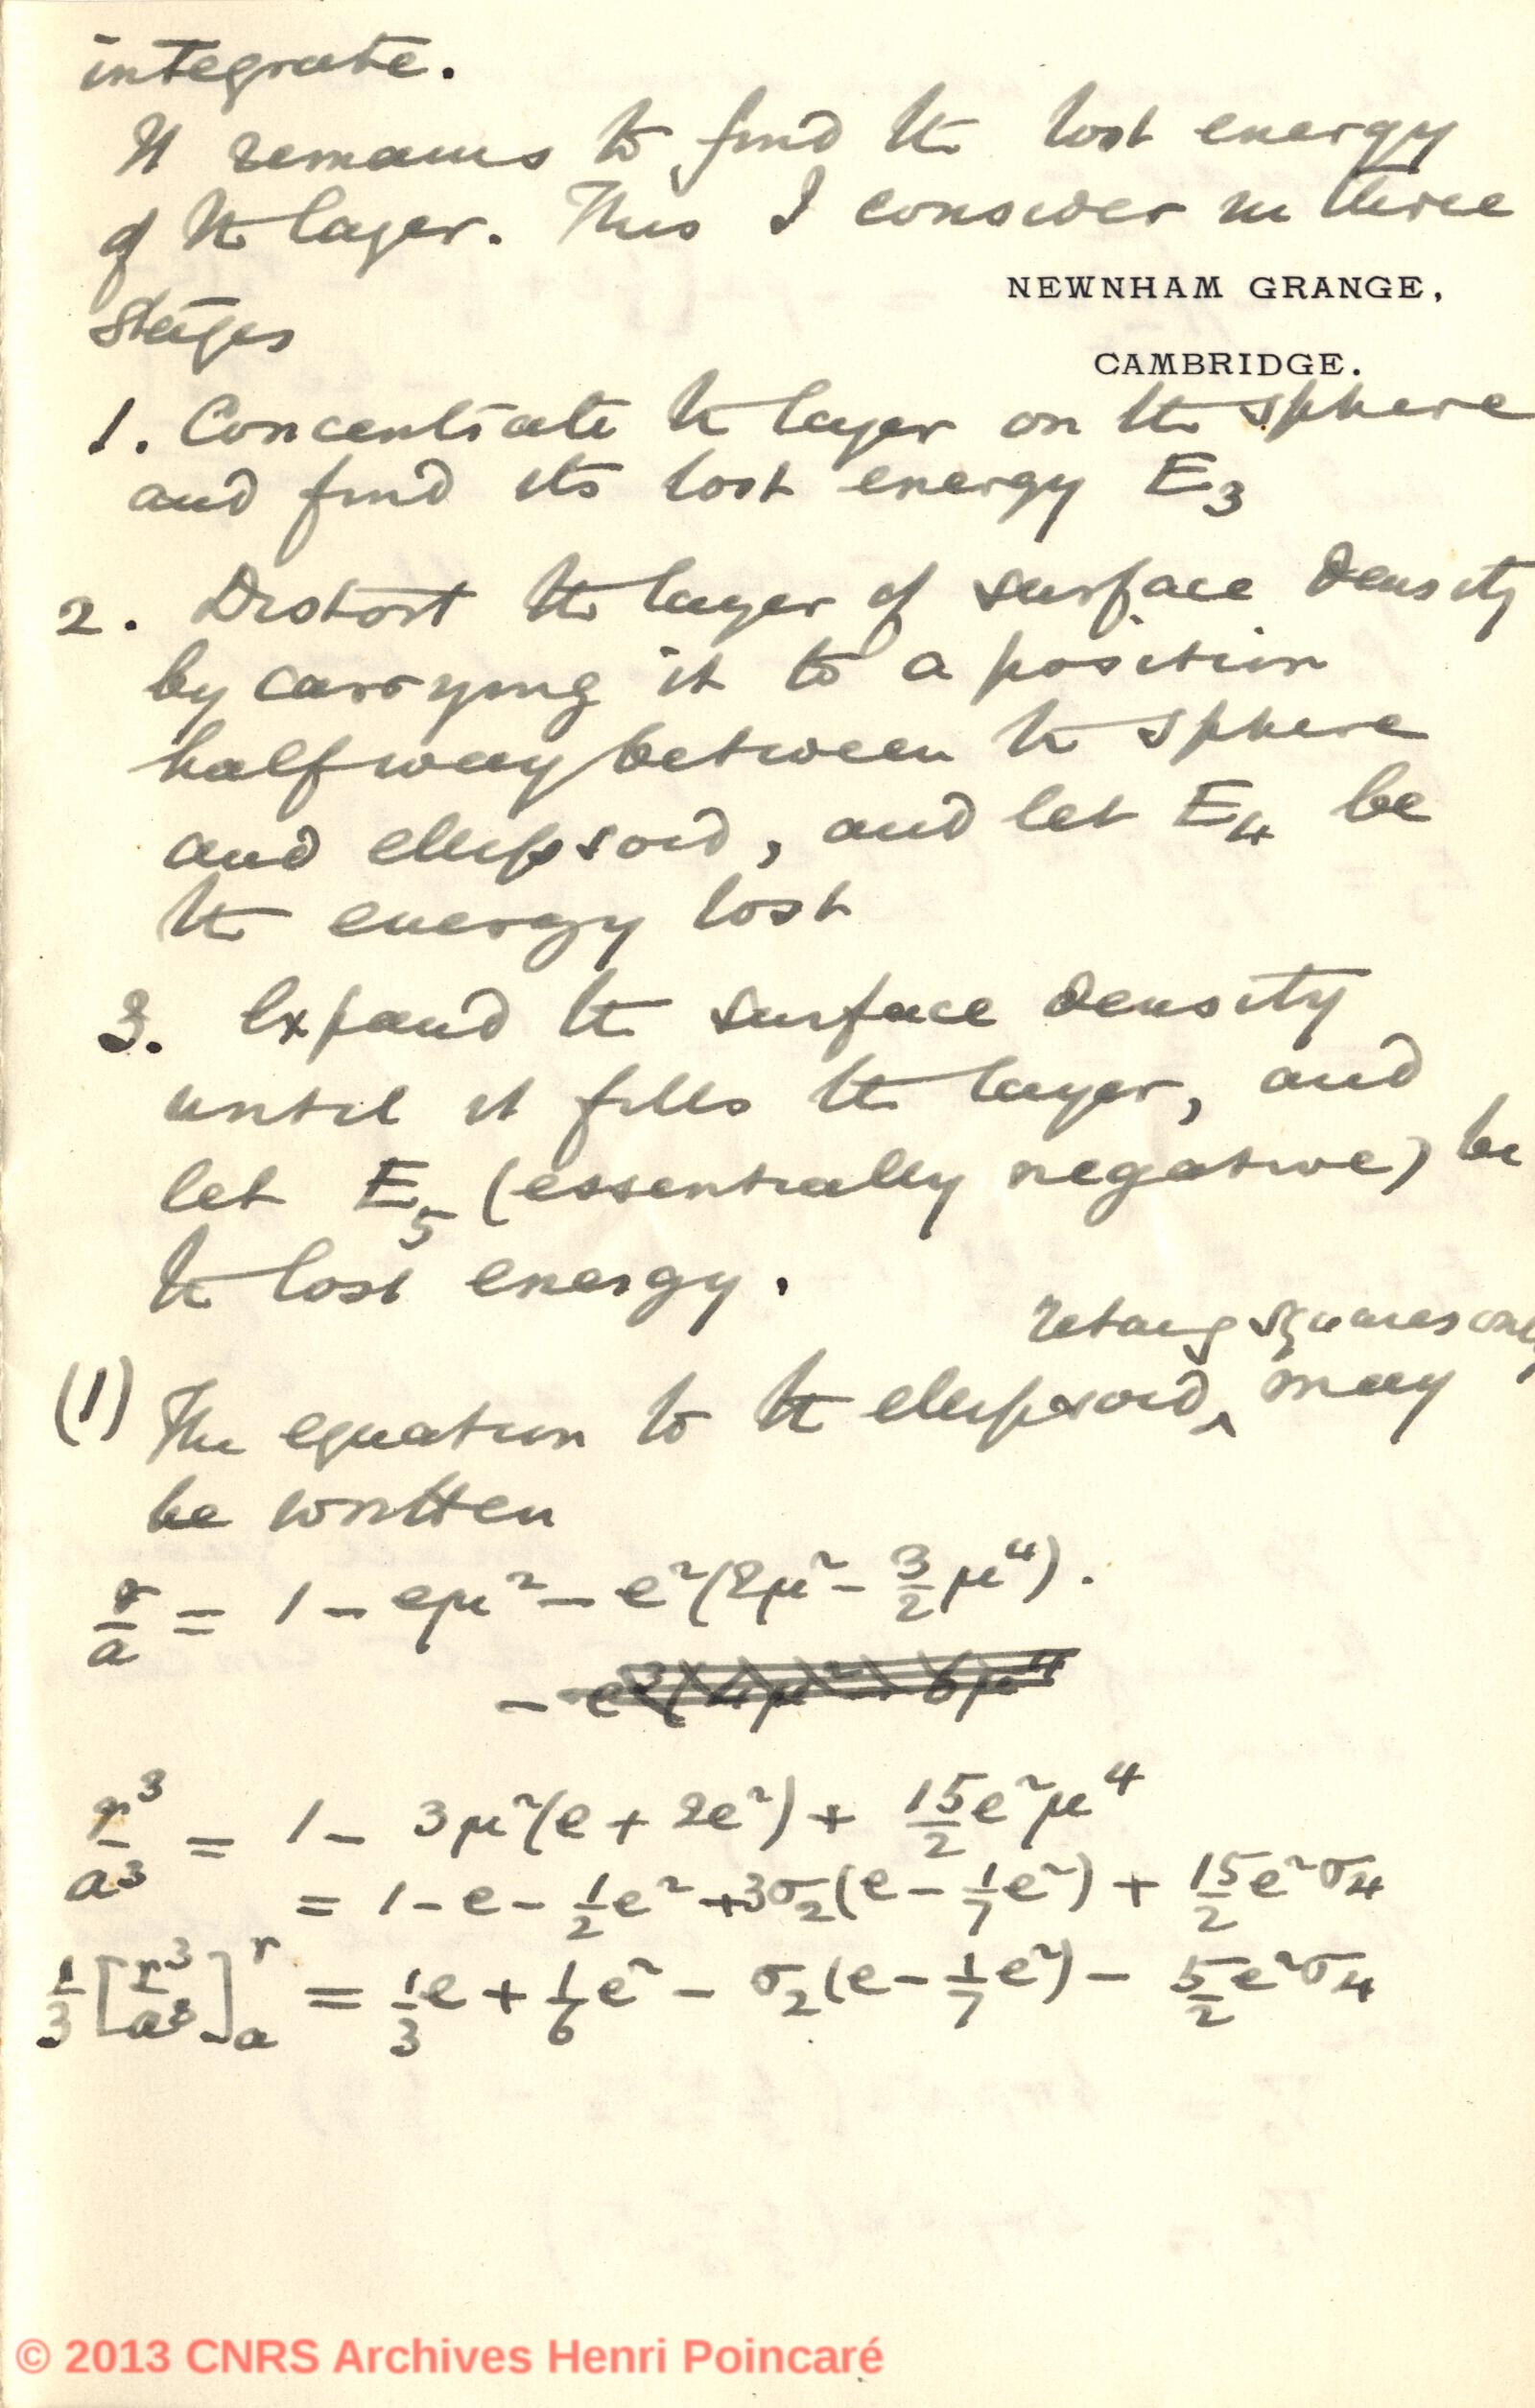 integrate.
It remains to find the lost energy
of the layer. This I consider in three
NEWNHAM GRANGE,
stages
CAMBRIDGE.
1. Concentrate the layer on the sphere
and find its lost energy E₃
2. Distort the layer of surface density
by carrying it to a position
halfway between the sphere
and ellipsoid, and let E₄ be
the energy lost
3. Expand the surface density
until it fills the layer, and
let E₅ (essentially negative) be
the lost energy.
retaing squares only
(1) The equation to the ellipsoid ‸ may
be written
r/a = 1 - eμ² - e²(2μ² - 3/2 μ⁴).
r³/a³ = 1 - 3μ²(e + 2e²) + 15/2 e²μ⁴
= 1 - e - 1/2 e² + 3σ₂(e - 1/7 e²) + 15/2 e²σ₄
1/3 [r³/a³]ₐʳ = 1/3 e + 1/6 e² - σ₂(e - 1/7 e²) - 5/2 e²σ₄
© 2013 CNRS Archives Henri Poincaré